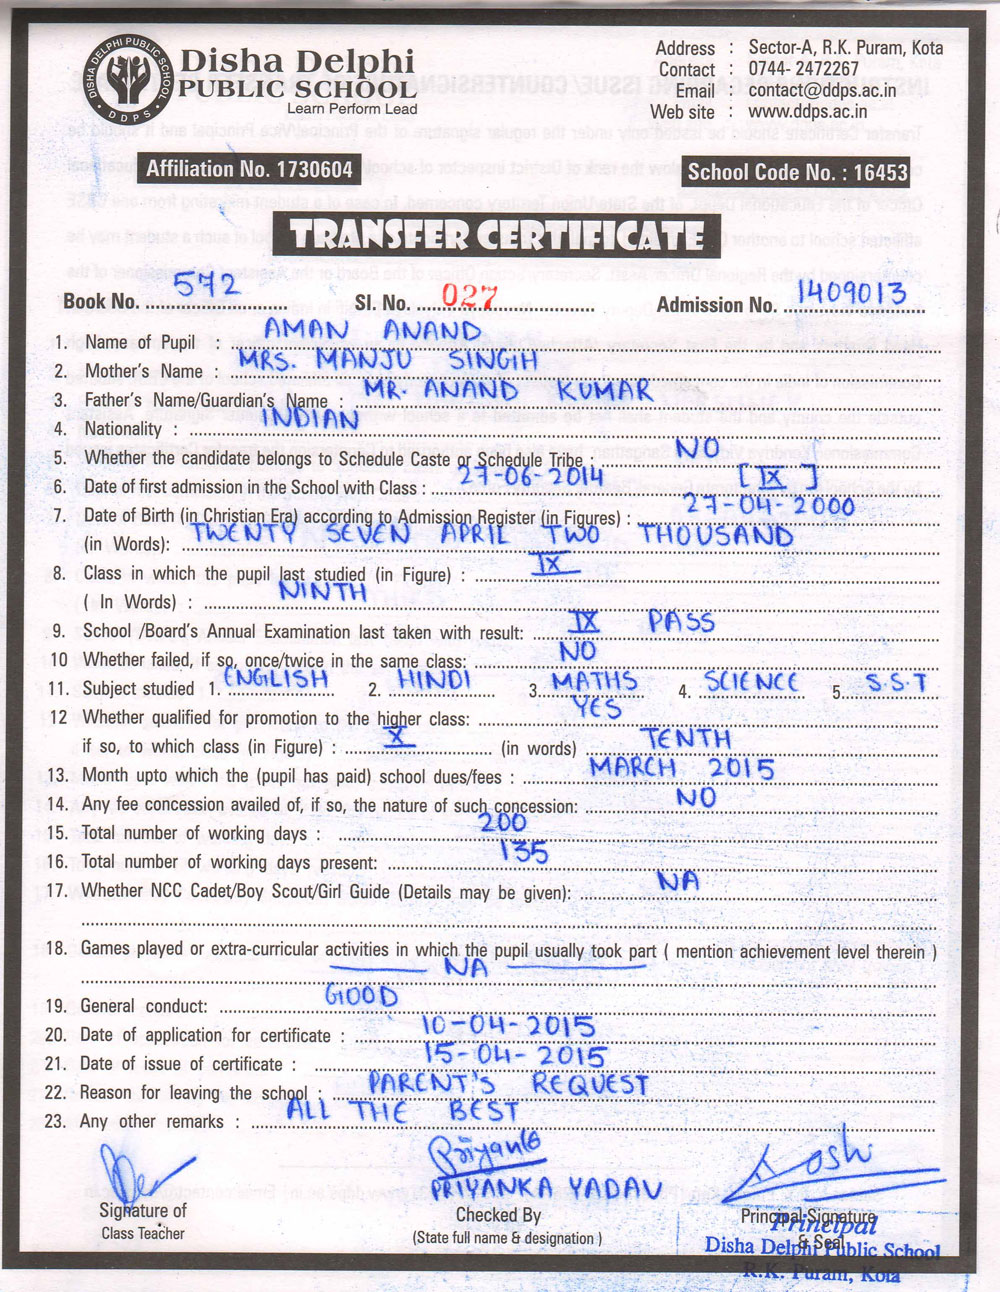 DISHA DELPHI PUBLIC SCHOOL
DDPS
Disha Delphi
PUBLIC SCHOOL
Learn Perform Lead
Address : Sector-A, R.K. Puram, Kota
Contact : 0744-2472267
Email : contact@ddps.ac.in
Web site : www.ddps.ac.in
Affiliation No. 1730604
School Code No. : 16453
TRANSFER CERTIFICATE
Book No. 572 Sl. No. 027 Admission No. 1409013
1. Name of Pupil : AMAN ANAND
2. Mother's Name : MRS. MANJU SINGH
3. Father's Name/Guardian's Name : MR. ANAND KUMAR
4. Nationality : INDIAN
5. Whether the candidate belongs to Schedule Caste or Schedule Tribe : NO
6. Date of first admission in the School with Class : 27-06-2014 [IX]
7. Date of Birth (in Christian Era) according to Admission Register (in Figures) : 27-04-2000
(in Words): TWENTY SEVEN APRIL TWO THOUSAND
8. Class in which the pupil last studied (in Figure) : IX
( In Words) : NINTH
9. School /Board's Annual Examination last taken with result: IX PASS
10 Whether failed, if so, once/twice in the same class: NO
11. Subject studied 1. ENGLISH 2. HINDI 3. MATHS 4. SCIENCE 5. S.S.T
12 Whether qualified for promotion to the higher class: YES
if so, to which class (in Figure) : X (in words) TENTH
13. Month upto which the (pupil has paid) school dues/fees : MARCH 2015
14. Any fee concession availed of, if so, the nature of such concession: NO
15. Total number of working days : 200
16. Total number of working days present: 135
17. Whether NCC Cadet/Boy Scout/Girl Guide (Details may be given): NA
18. Games played or extra-curricular activities in which the pupil usually took part ( mention achievement level therein )
NA
19. General conduct: GOOD
20. Date of application for certificate : 10-04-2015
21. Date of issue of certificate : 15-04-2015
22. Reason for leaving the school : PARENT'S REQUEST
23. Any other remarks : ALL THE BEST
PRIYANKA YADAV
Signature of
Class Teacher
Checked By
(State full name & designation )
Principal Signature
& Seal
Principal
Disha Delphi Public School
R.K. Puram, Kota